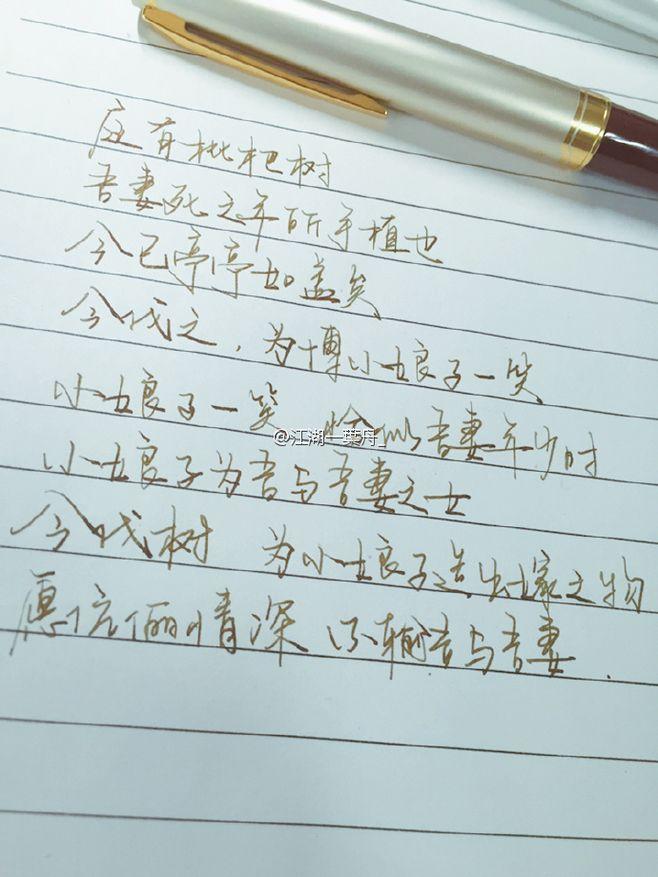 庭有枇杷树
吾妻死之年所手植也
今已亭亭如盖矣
今伐之，为博小娘子一笑
小娘子一笑 恰似吾妻年少时
@江湖一葉舟_
小娘子为吾与吾妻之女
今伐树 为小娘子造出嫁之物
愿伉俪情深 不输吾与吾妻.